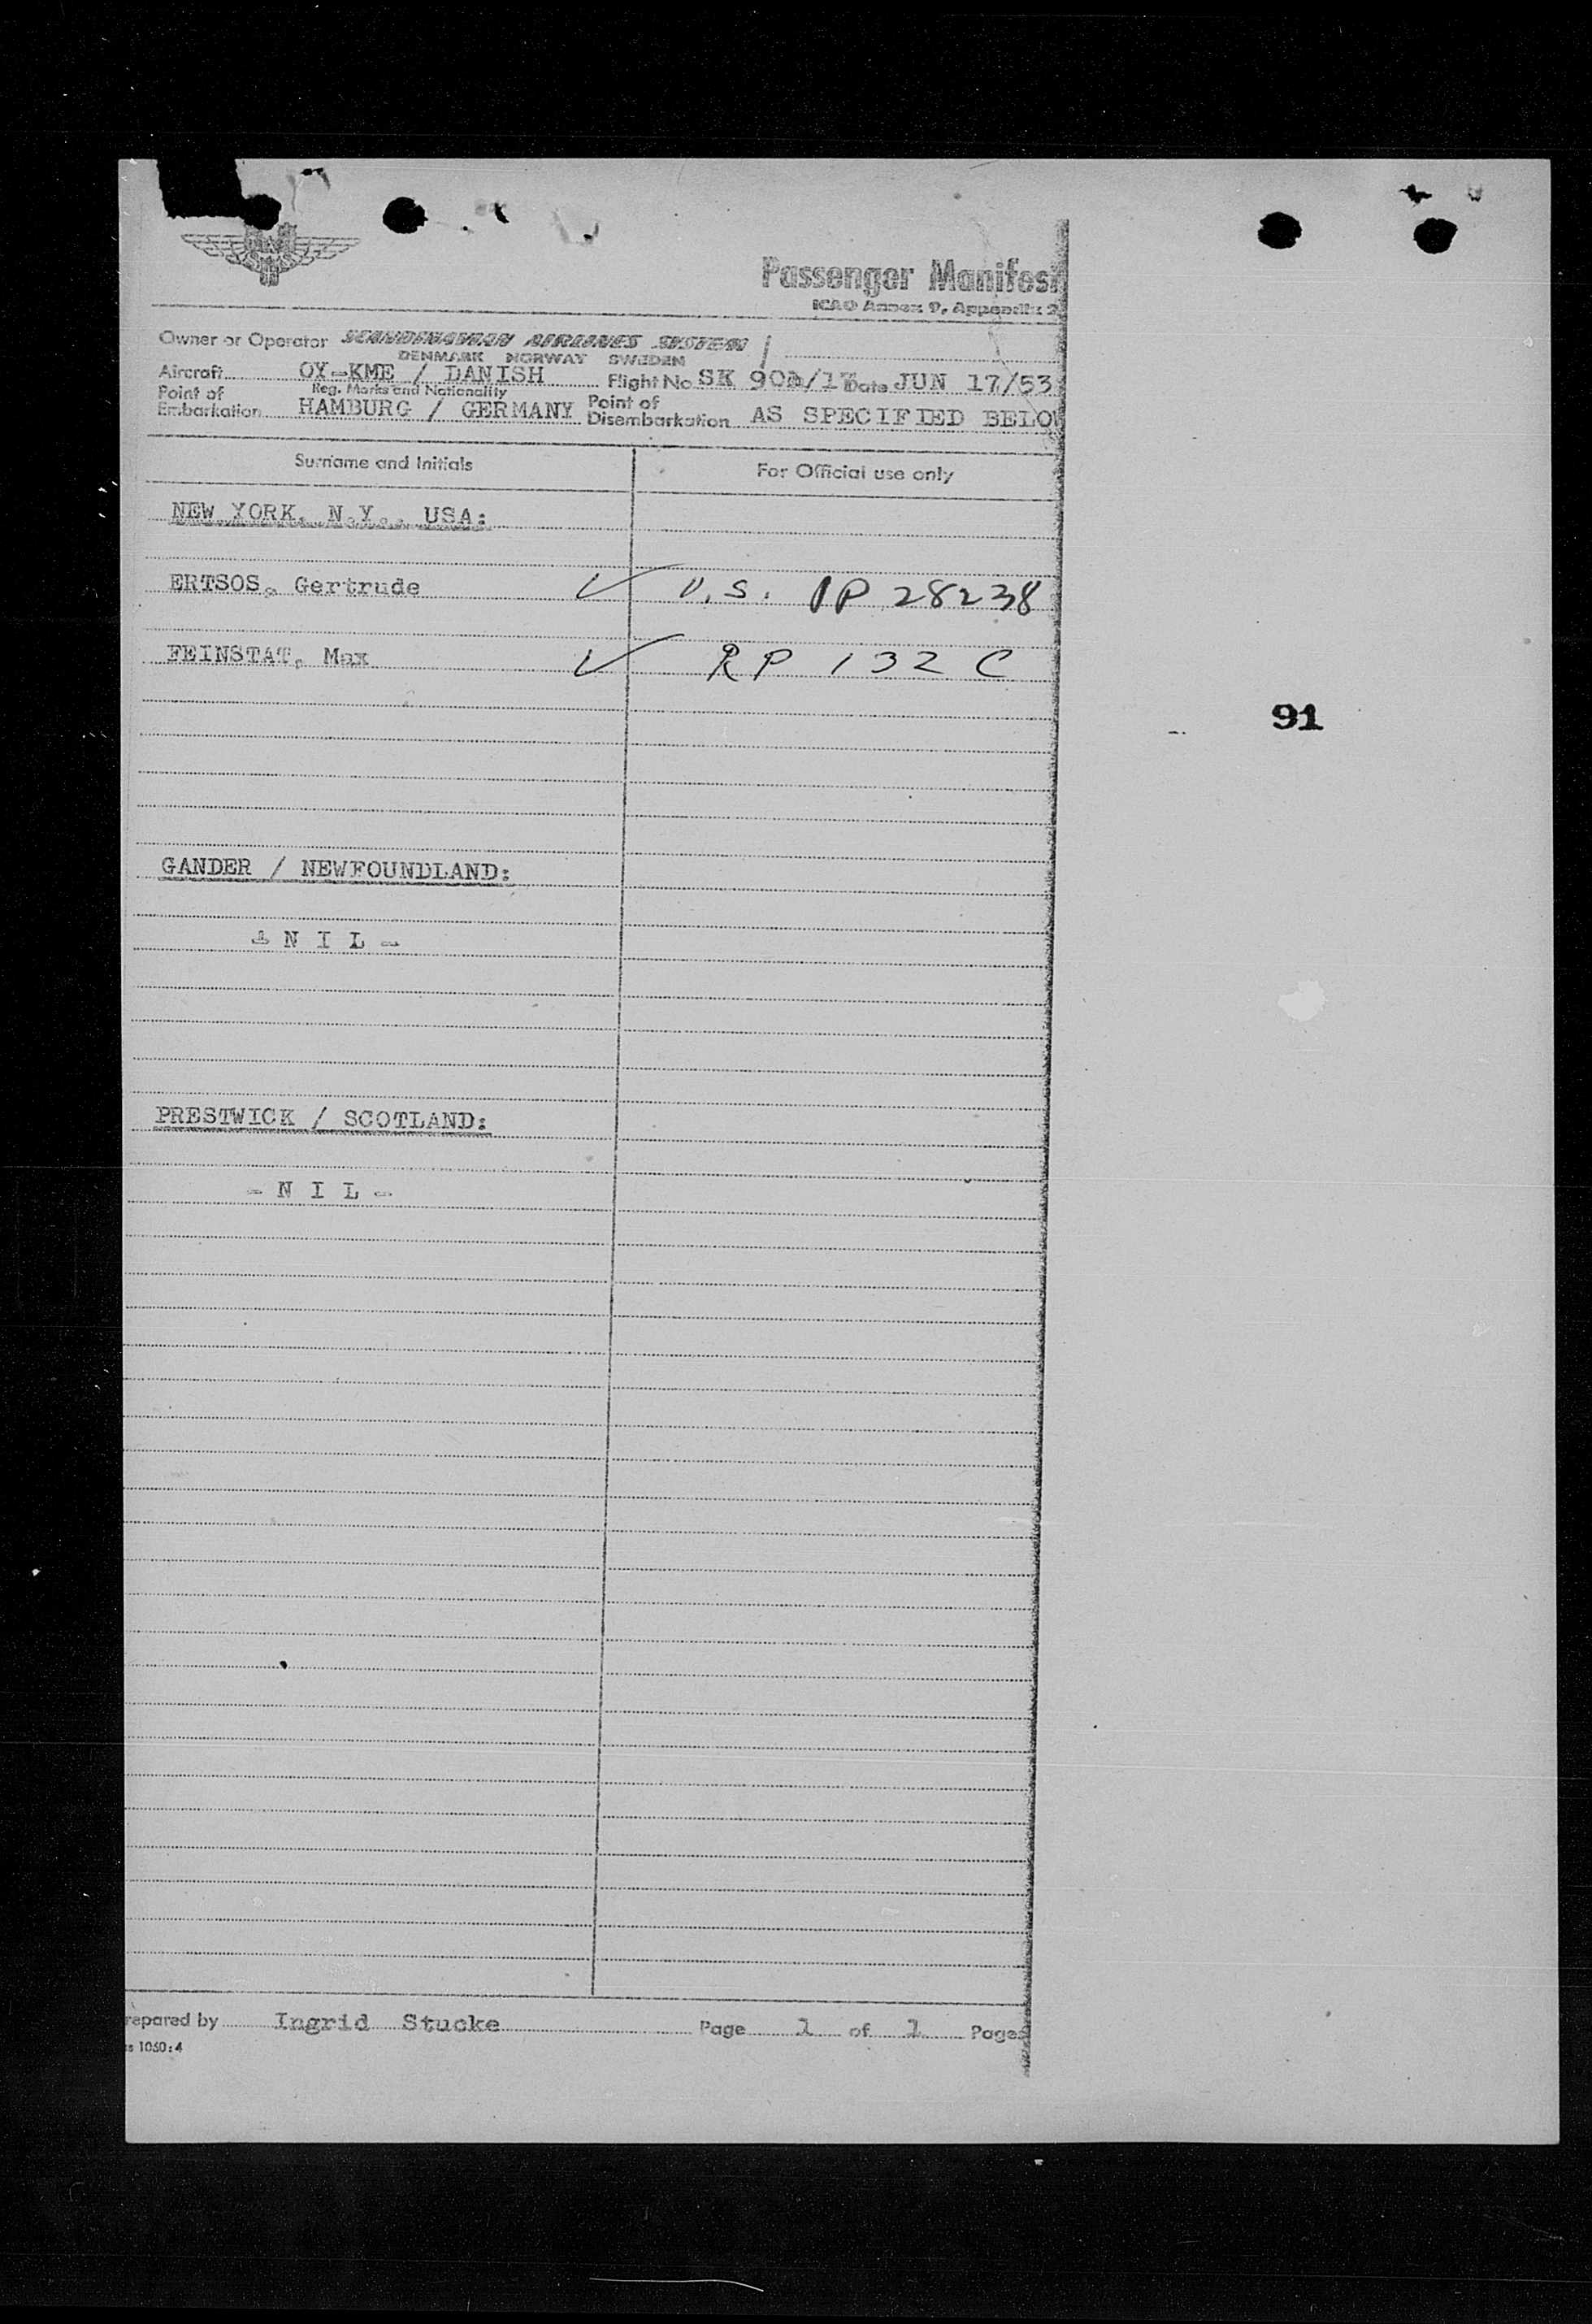 Passenger Manifest
ICAO Annex 9, Appendix 2
Owner or Operator SCANDINAVIAN AIRLINES SYSTEM
DENMARK NORWAY SWEDEN
Aircraft OY-KME / DANISH Flight No SK Date JUN 17/53
Reg. Marks and Nationality
Point of Embarkation HAMBURG / GERMANY Point of Disembarkation AS SPECIFIED BELO
Surname and Initials For Official use only
NEW YORK, N.Y., USA:
ERTSOS, Gertrude ✓ U.S. PP 28238
FEINSTAT, Max ✓ RP 132 C
91
GANDER / NEWFOUNDLAND:
- N I L -
PRESTWICK / SCOTLAND:
- N I L -
repared by Ingrid Stucke Page 1 of 1 Pages
s 1060:4